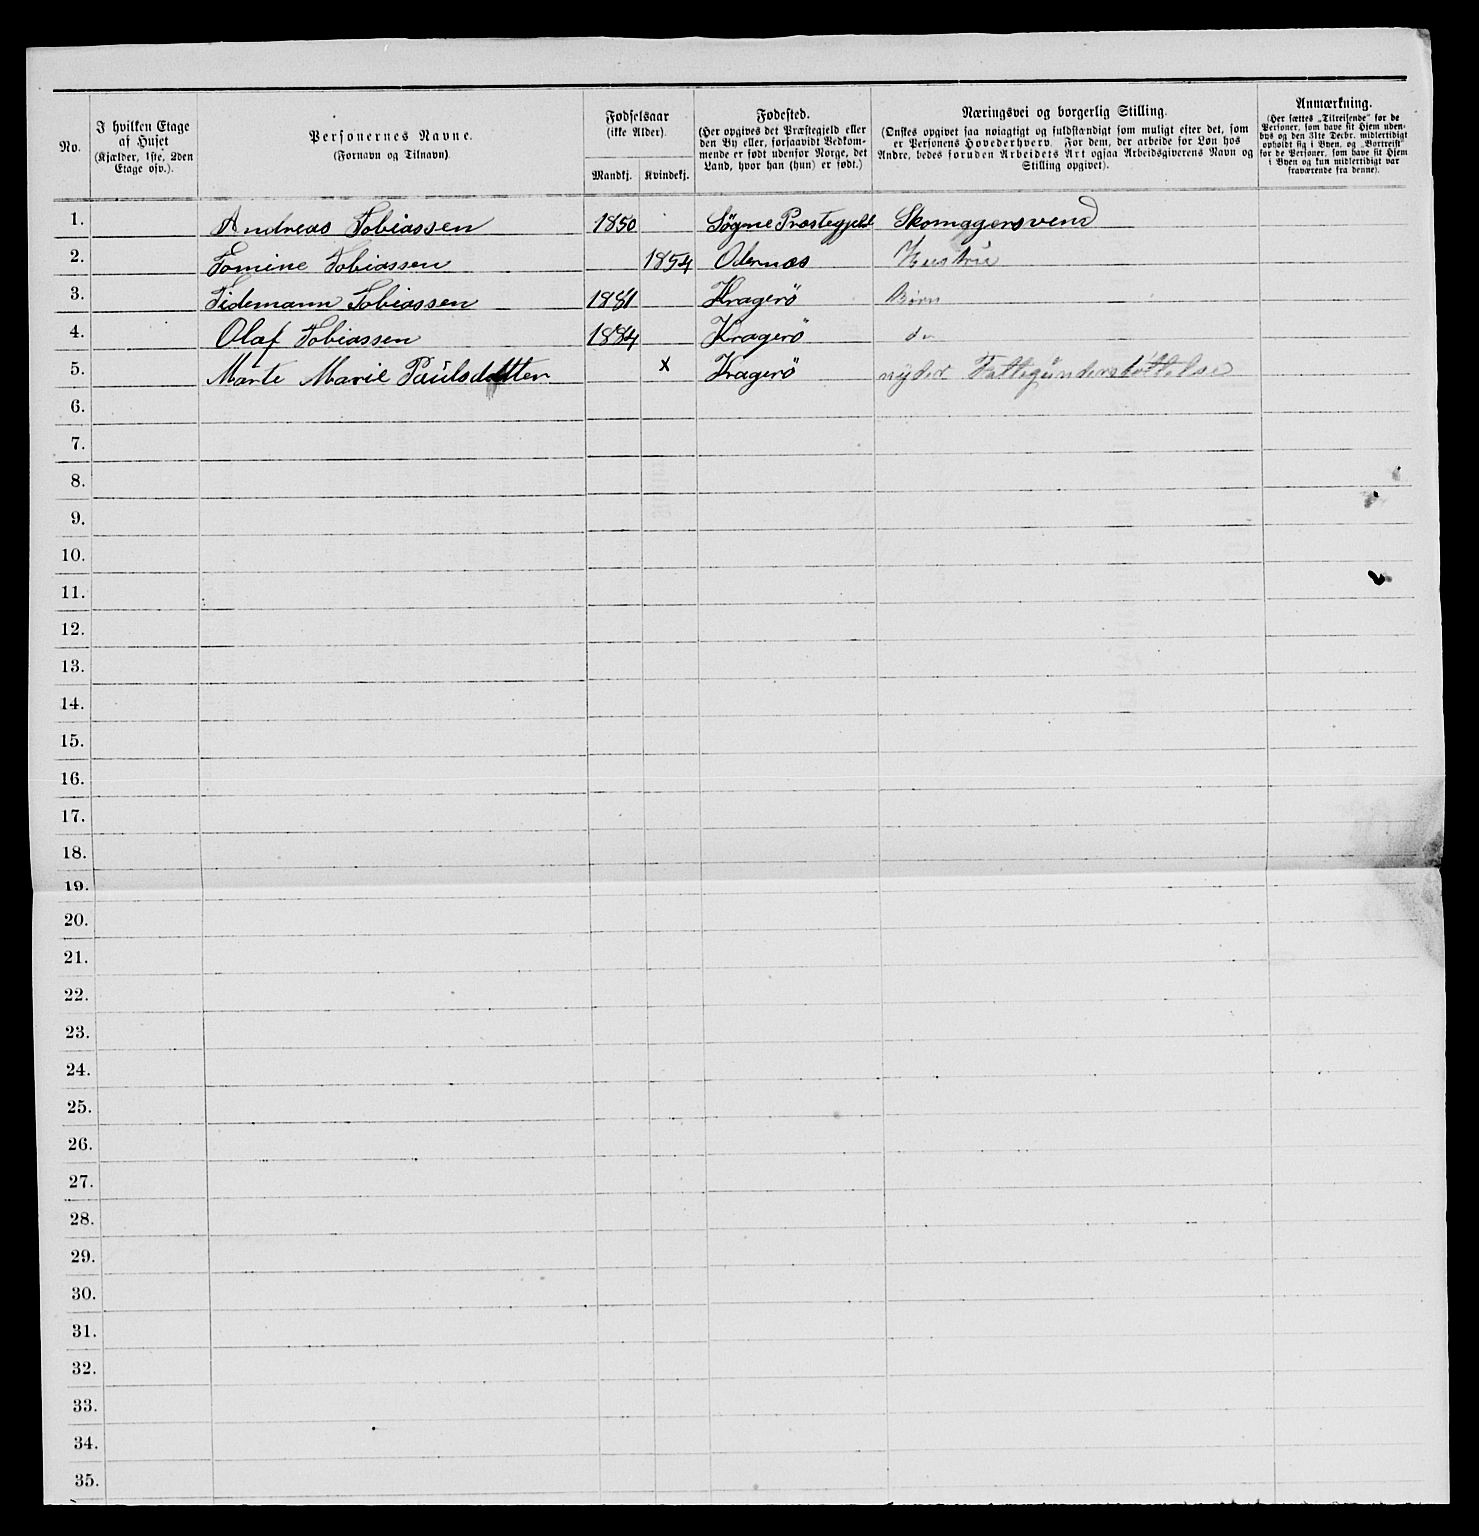 No.
I hvilken Etage
af Huset
(Kjælder, 1ste, 2den
Etage osv.).
Personernes Navne.
(Fornavn og Tilnavn)
Fødselsaar
(ikke Alder).
Mandkj.
Kvindekj.
Fødested.
(Her opgives det Præstegjeld eller
den By eller, forsaavidt Vedkom-
mende er født udenfor Norge, det
Land, hvor han (hun) er født.)
Næringsvei og borgerlig Stilling.
(Ønskes opgivet saa nøiagtigt og fuldstændigt som muligt efter det, som
er Personens Hovederhverv. For dem, der arbeide for Løn hos
Andre, bedes foruden Arbeidets Art ogsaa Arbeidsgiverens Navn og
Stilling opgivet).
Anmærkning.
(Her sættes „Tilreisende" for de
Personer, som have sit Hjem uden-
bys og den 31te Decbr. midlertidigt
opholdt sig i Byen, og „Bortreist"
for de Personer, som have sit Hjem
i Byen og kun midlertidigt var
fraværende fra denne).
1. Andreas Tobiassen 1850 Søgne Præstegjeld Skomagersvend
2. Tomine Tobiassen 1854 Odernæs Hustru
3. Tidemann Tobiassen 1881 Kragerö Børn
4. Olaf Tobiassen 1884 Kragerö do
5. Marte Marie Paulsdatter x Kragerö nyder Fattigunderstøttelse
6.
7.
8.
9.
10.
11.
12.
13.
14.
15.
16.
17.
18.
19.
20.
21.
22.
23.
24.
25.
26.
27.
28.
29.
30.
31.
32.
33.
34.
35.